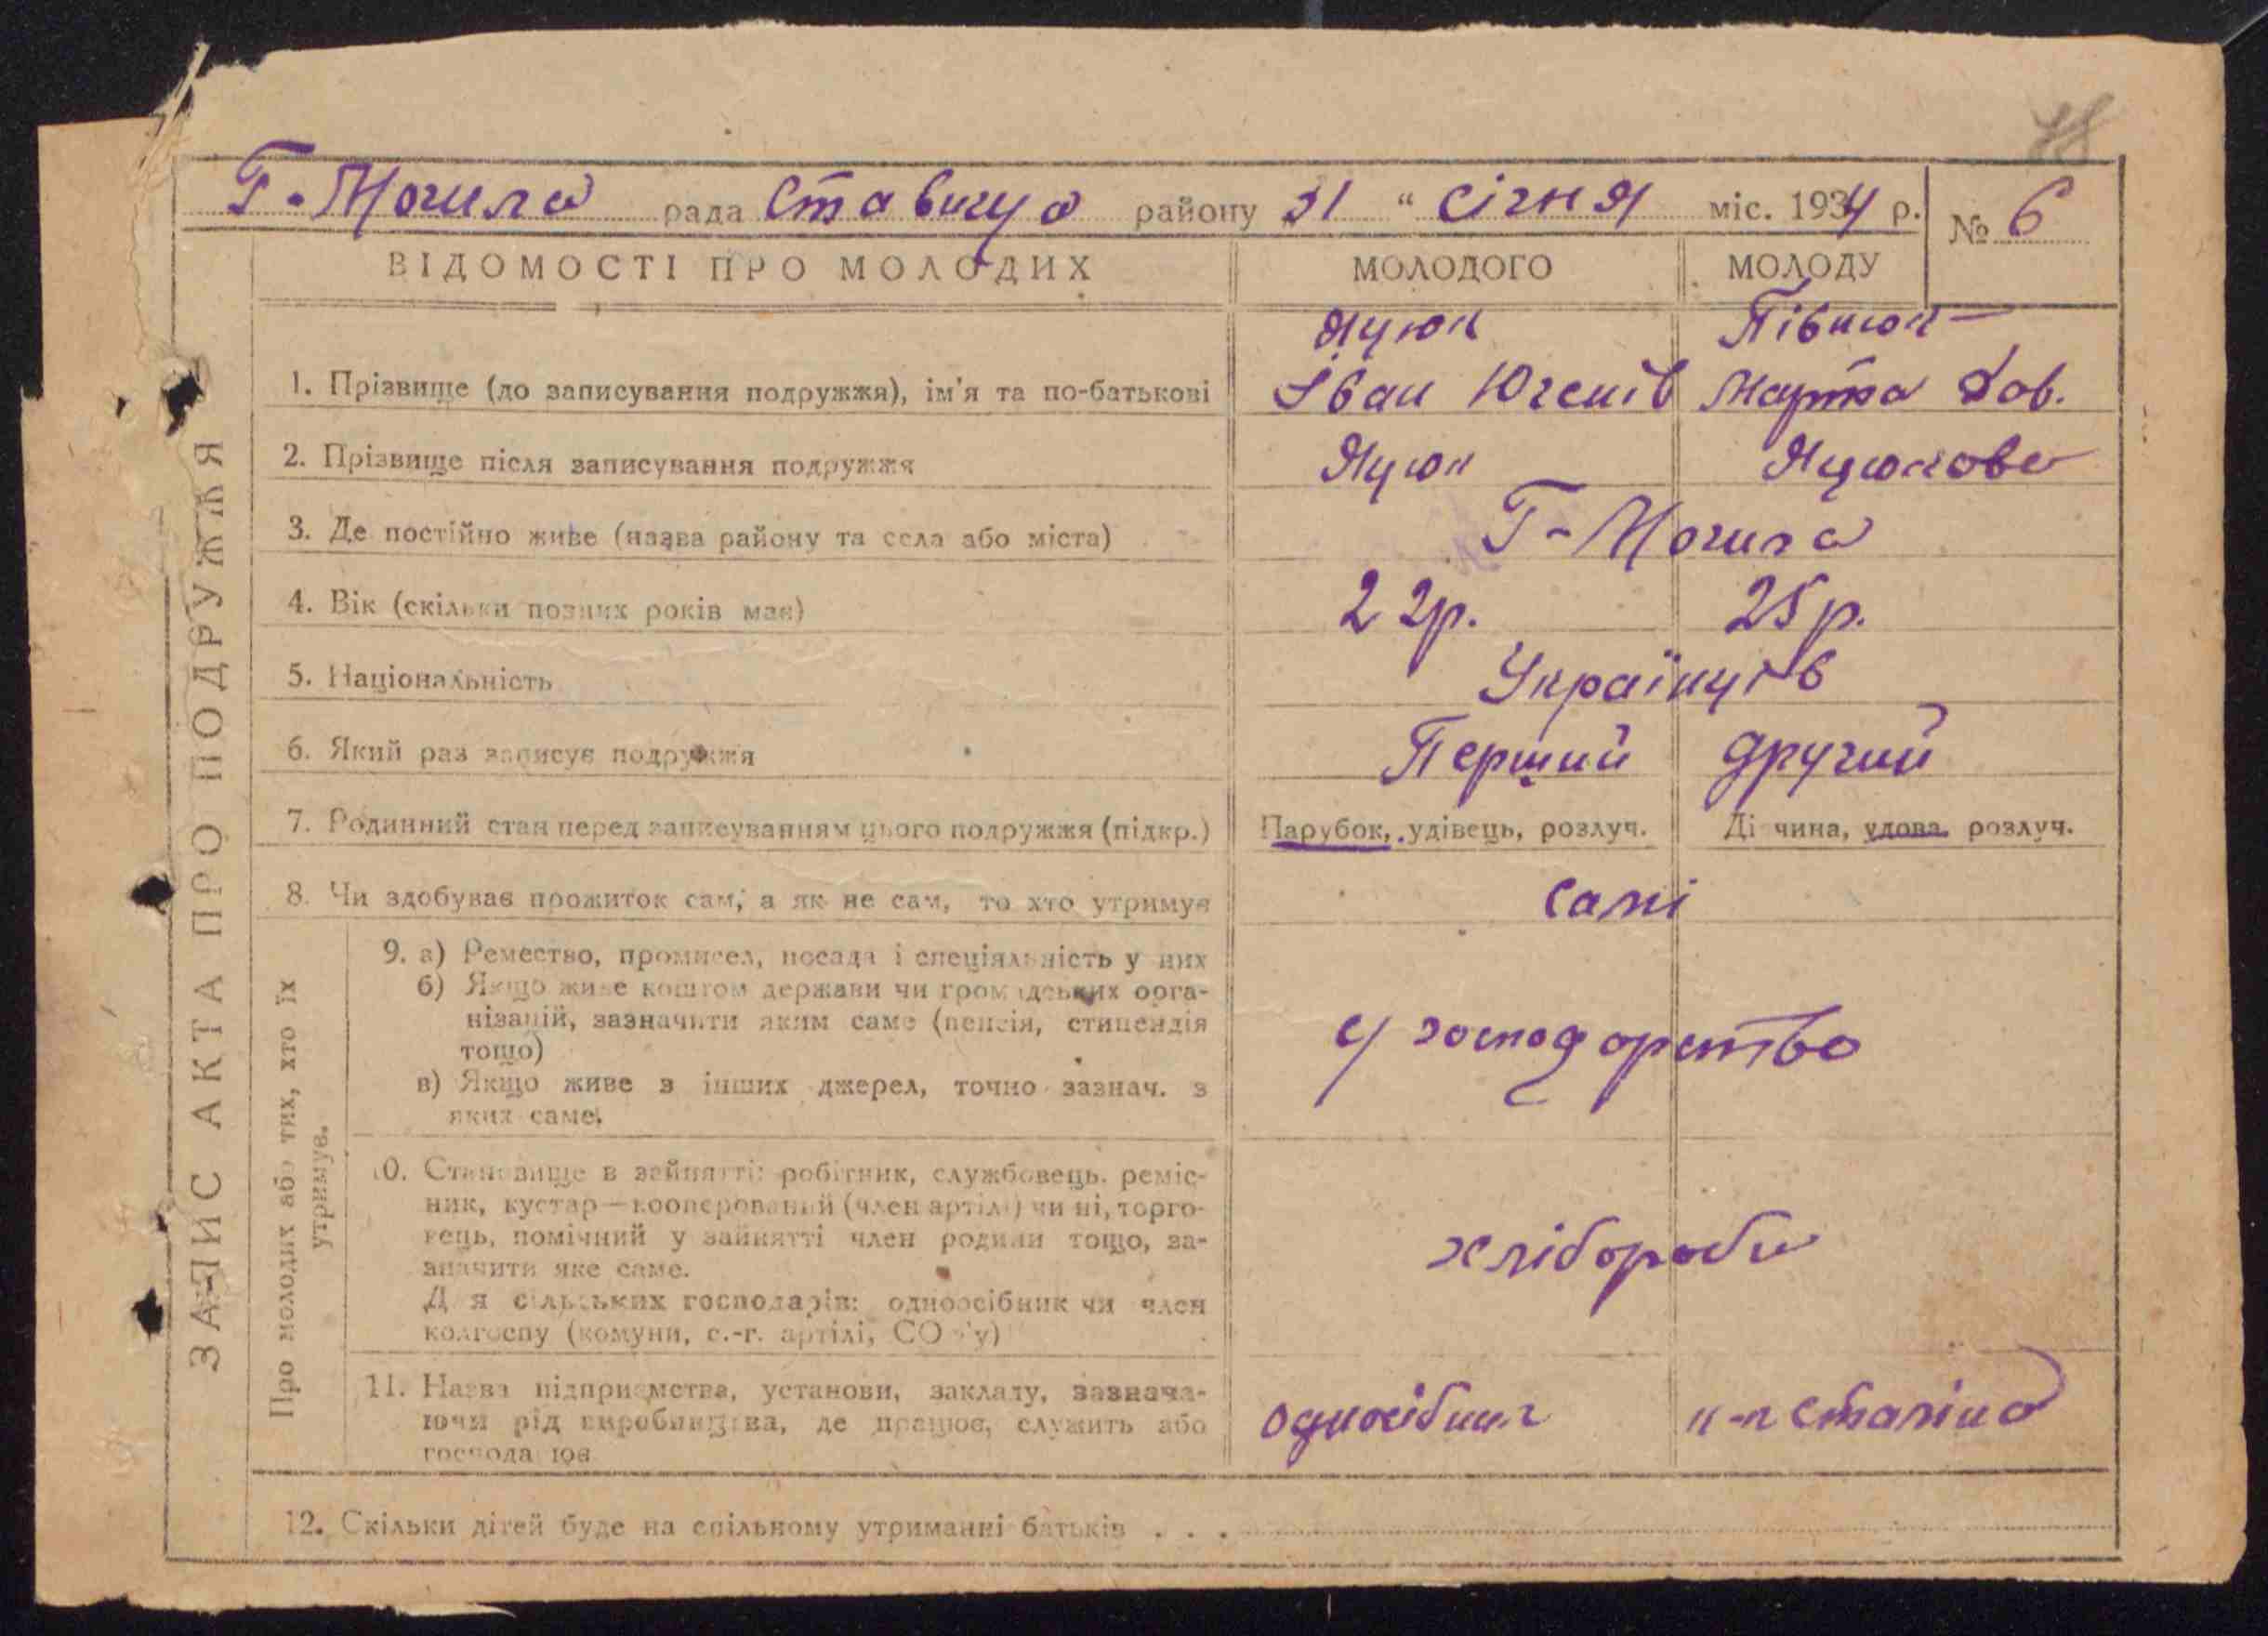 78
Г-Могила рада Ставища району 31 " січня міс. 1934 р. № 6
ВІДОМОСТІ ПРО МОЛОДИХ МОЛОДОГО МОЛОДУ
Яцюк
1. Прізвище (до записування подружжя), ім'я та по-батькові Іван Югенів Марта Дов.
2. Прізвище після записування подружжя Яцюк Яцюкова
3. Де постійно живе (назва району та села або міста) Г-Могила
4. Вік (скільки повних років має) 22р. 25р.
5. Національність Українців
6. Який раз записує подружжя Перший другий
7. Родинний стан перед записуванням цього подружжя (підкр.) Парубок, удівець, розлуч. Ді чина, удова розлуч.
8. Чи здобуває прожиток сам, а як не сам, то хто утримує самі
9. а) Ремество, промисел, посада і спеціяльність у них
б) Якщо живе коштом держави чи громадських орга-
нізацій, зазначити яким саме (пенсія, стипендія
тощо)
у господорство
в) Якщо живе з інших джерел, точно зазнач. з
яких саме.
10. Становище в зайнятті: робітник, службовець, реміс-
ник, кустар—кооперований (член артілі) чи ні, торго-
вець, помічний у зайнятті член родини тощо, за-
значити яке саме.
хлібороби
Для сільських господарів: одноосібник чи член
колгоспу (комуни, с.-г. артілі, СОЗ'у)
11. Назва підприємства, установи, закладу, зазнача-
ючи рід виробництва, де працює, служить або
господарює
одноосібник к-п Сталіна
12. Скільки дітей буде на спільному утриманні батьків . . .
ЗАПИС АКТА ПРО ПОДРУЖЖЯ
Про молодих або тих, хто їх
утримує.